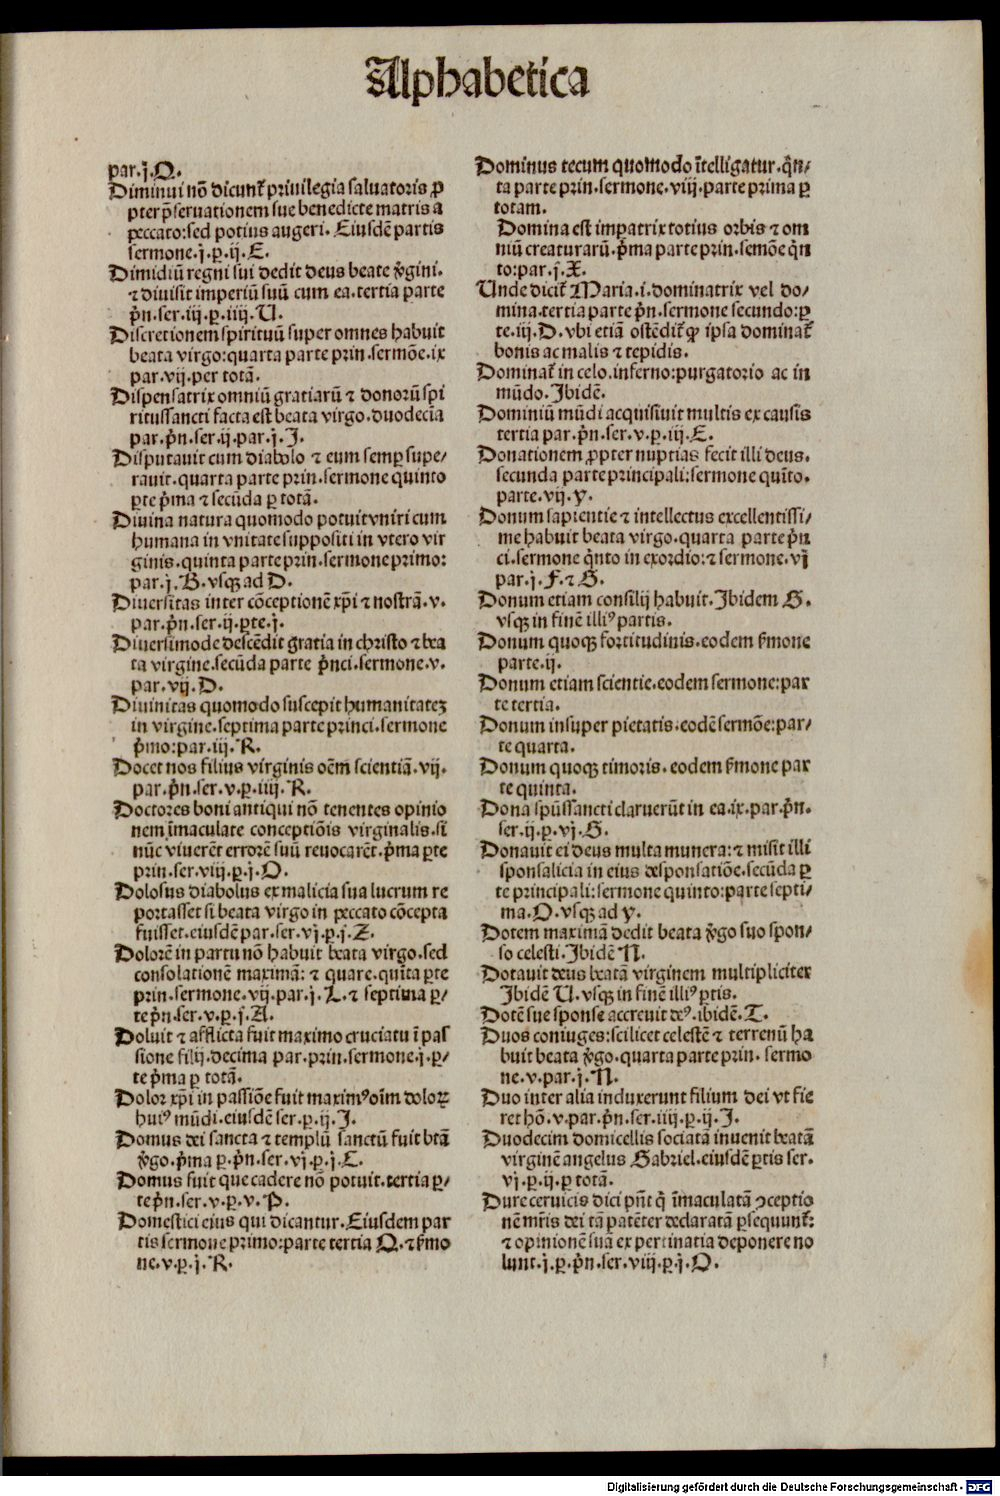 Alphabetica
par.j.Q.
Diminui nō dicunt᷑ priuilegia saluatoris ꝓ
pter p̄seruationem sue benedicte matris a
peccato:sed potius augeri. Eiusdē partis
sermone.j.ꝑ.ij.E.
Dimidiū regni sui dedit deus beate v̓gini.
⁊ diuisit imperiū suū cum ea.tertia parte
pn̓.ser.iij.ꝑ.iiij.U.
Discretionem spirituū super omnes habuit
beata virgo:quarta parte prin.sermōe.ix
par.vij.per totā.
Dispensatrix omniū gratiarū ⁊ donorū spi
ritussancti facta est beata virgo.duodecīa
par.pn̓.ser.ij.par.j.I.
Disputauit cum diabolo ⁊ eum semꝑ supe/
rauit.quarta parte prin.sermone quinto
ꝑte p̓ma ⁊ secūda ꝑ totā.
Diuina natura quomodo potuit vniri cum
humana in vnitate suppositi in vtero vir
ginis.quinta parte prin.sermone primo:
par.j.B.vsqꝫ ad D.
Diuersitas inter cōceptionē xp̄i ⁊ nostrā.v.
par.pn̓.ser.ij.ꝑte.j.
Diuersimode descēdit gratia in christo ⁊ bea
ta virgine.secūda parte pn̓ci.sermone.v.
par.vij.D.
Diuinitas quomodo suscepit humanitateꝫ
in virgine.septima parte princi.sermone
p̓mo:par.iij.R.
Docet nos filius virginis oēm scientiā.vij.
par.pn̓.ser.v.ꝑ.iiij.R.
Doctores boni antiqui nō tenentes opinio
nem īmaculate conceptiōis virginalis.si
nūc viuerēt errorē suū reuocarēt.p̓ma ꝑte
prin.ser.viij.ꝑ.j.O.
Dolosus diabolus ex malicia sua lucrum re
portasset si beata virgo in peccato cōcepta
fuisset.eiusdē par.ser.vj.ꝑ.j.Z.
Dolorē in partu nō habuit beata virgo.sed
consolationē maximā: ⁊ quare.quīta ꝑte
prin.sermone.vij.par.j.L.⁊ septima ꝑ/
te pn̓.ser.v.ꝑ.j.A.
Doluit ⁊ afflicta fuit maximo cruciatu ī pas
sione filij.decima par.prin.sermone.j.ꝑ/
te p̓ma ꝑ totā.
Dolor xp̄i in passiōe fuit maximꝰ oīm doloꝝ
huiꝰ mūdi.eiusdē ser.ꝑ.ij.I.
Domus dei sancta ⁊ templū sanctū fuit btā
v̓go.p̓ma ꝑ.pn̓.ser.vj.ꝑ.j.C.
Domus fuit que cadere nō potuit.tertia ꝑ/
te pn̓.ser.v.ꝑ.v.P.
Domestici eius qui dicantur.Eiusdem par
tis sermone primo:parte tertia Q.⁊ s̓mo
ne.v.ꝑ.j.R.
Dominus tecum quomodo ītelligatur.qn̓/
ta parte prin.sermone.viij.parte prima ꝑ
totam.
Domina est impatrix totius orbis ⁊ om
niū creaturarū.p̓ma parte prin.semōe qn̓
to:par.j.X.
Unde dicit᷑ Maria.i.dominatrix vel do/
mina.tertia parte pn̓.sermone secundo:ꝑ
te.iij.D.vbi etiā ostēdit᷑ ꝙ ipsa dominat᷑
bonis ac malis ⁊ tepidis.
Dominat᷑ in celo.inferno:purgatorio ac in
mūdo.Ibidē.
Dominiū mūdi acquisiuit multis ex causis
tertia par.pn̓.ser.v.ꝑ.iij.E.
Donationem ꝓpter nuptias fecit illi deus.
secunda parte principali:sermone quīto.
parte.vij.y.
Donum sapientie ⁊ intellectus excellentissi/
me habuit beata virgo.quarta parte pn̓
ci.sermone qn̓to in exordio:⁊ sermone.vj
par.j.F.⁊ G.
Donum etiam consilij habuit.Ibidem G.
vsqꝫ in finē illiꝰ partis.
Donum quoqꝫ fortitudinis.eodem s̓mone
parte.ij.
Donum etiam scientie.eodem sermone:par
te tertia.
Donum insuper pietatis.eodē sermōe:par/
te quarta.
Donum quoqꝫ timoris.eodem s̓mone par
te quinta.
Dona spūssancti claruerūt in ea.ix.par.pn̓.
ser.ij.ꝑ.vj.G.
Donauit ei deus multa munera:⁊ misit illi
sponsalicia in eius desponsatiōe.secūda ꝑ
te principali:sermone quinto:parte septi/
ma.O.vsqꝫ ad y.
Dotem maximā dedit beata v̓go suo spon/
so celesti.Ibidē N.
Dotauit deus beatā virginem multipliciter
Ibidē U.vsqꝫ in finē illiꝰ ꝑtis.
Dotē sue sponse accreuit deꝰ.ibidē.T.
Duos coniuges:scilicet celestē ⁊ terrenū ha
buit beata v̓go.quarta parte prin. sermo
ne.v.par.j.N.
Duo inter alia induxerunt filium dei vt fie
ret hō.v.par.pn̓.ser.iiij.ꝑ.ij.I.
Duodecim domicellis sociatā inuenit beatā
virginē angelus Gabriel.eiusdē ꝑtis ser.
vj.ꝑ.ij.ꝑ totā.
Dure ceruicis dici pn̄t q̓ īmaculatā ꝯceptio
nē mr̄is dei tā patēter declaratā ꝑsequunt᷑:
⁊ opinionē suā ex pertinatia deponere no
lunt.j.ꝑ.pn̓.ser.viij.ꝑ.j.O.
Digitalisierung gefördert durch die Deutsche Forschungsgemeinschaft - DFG